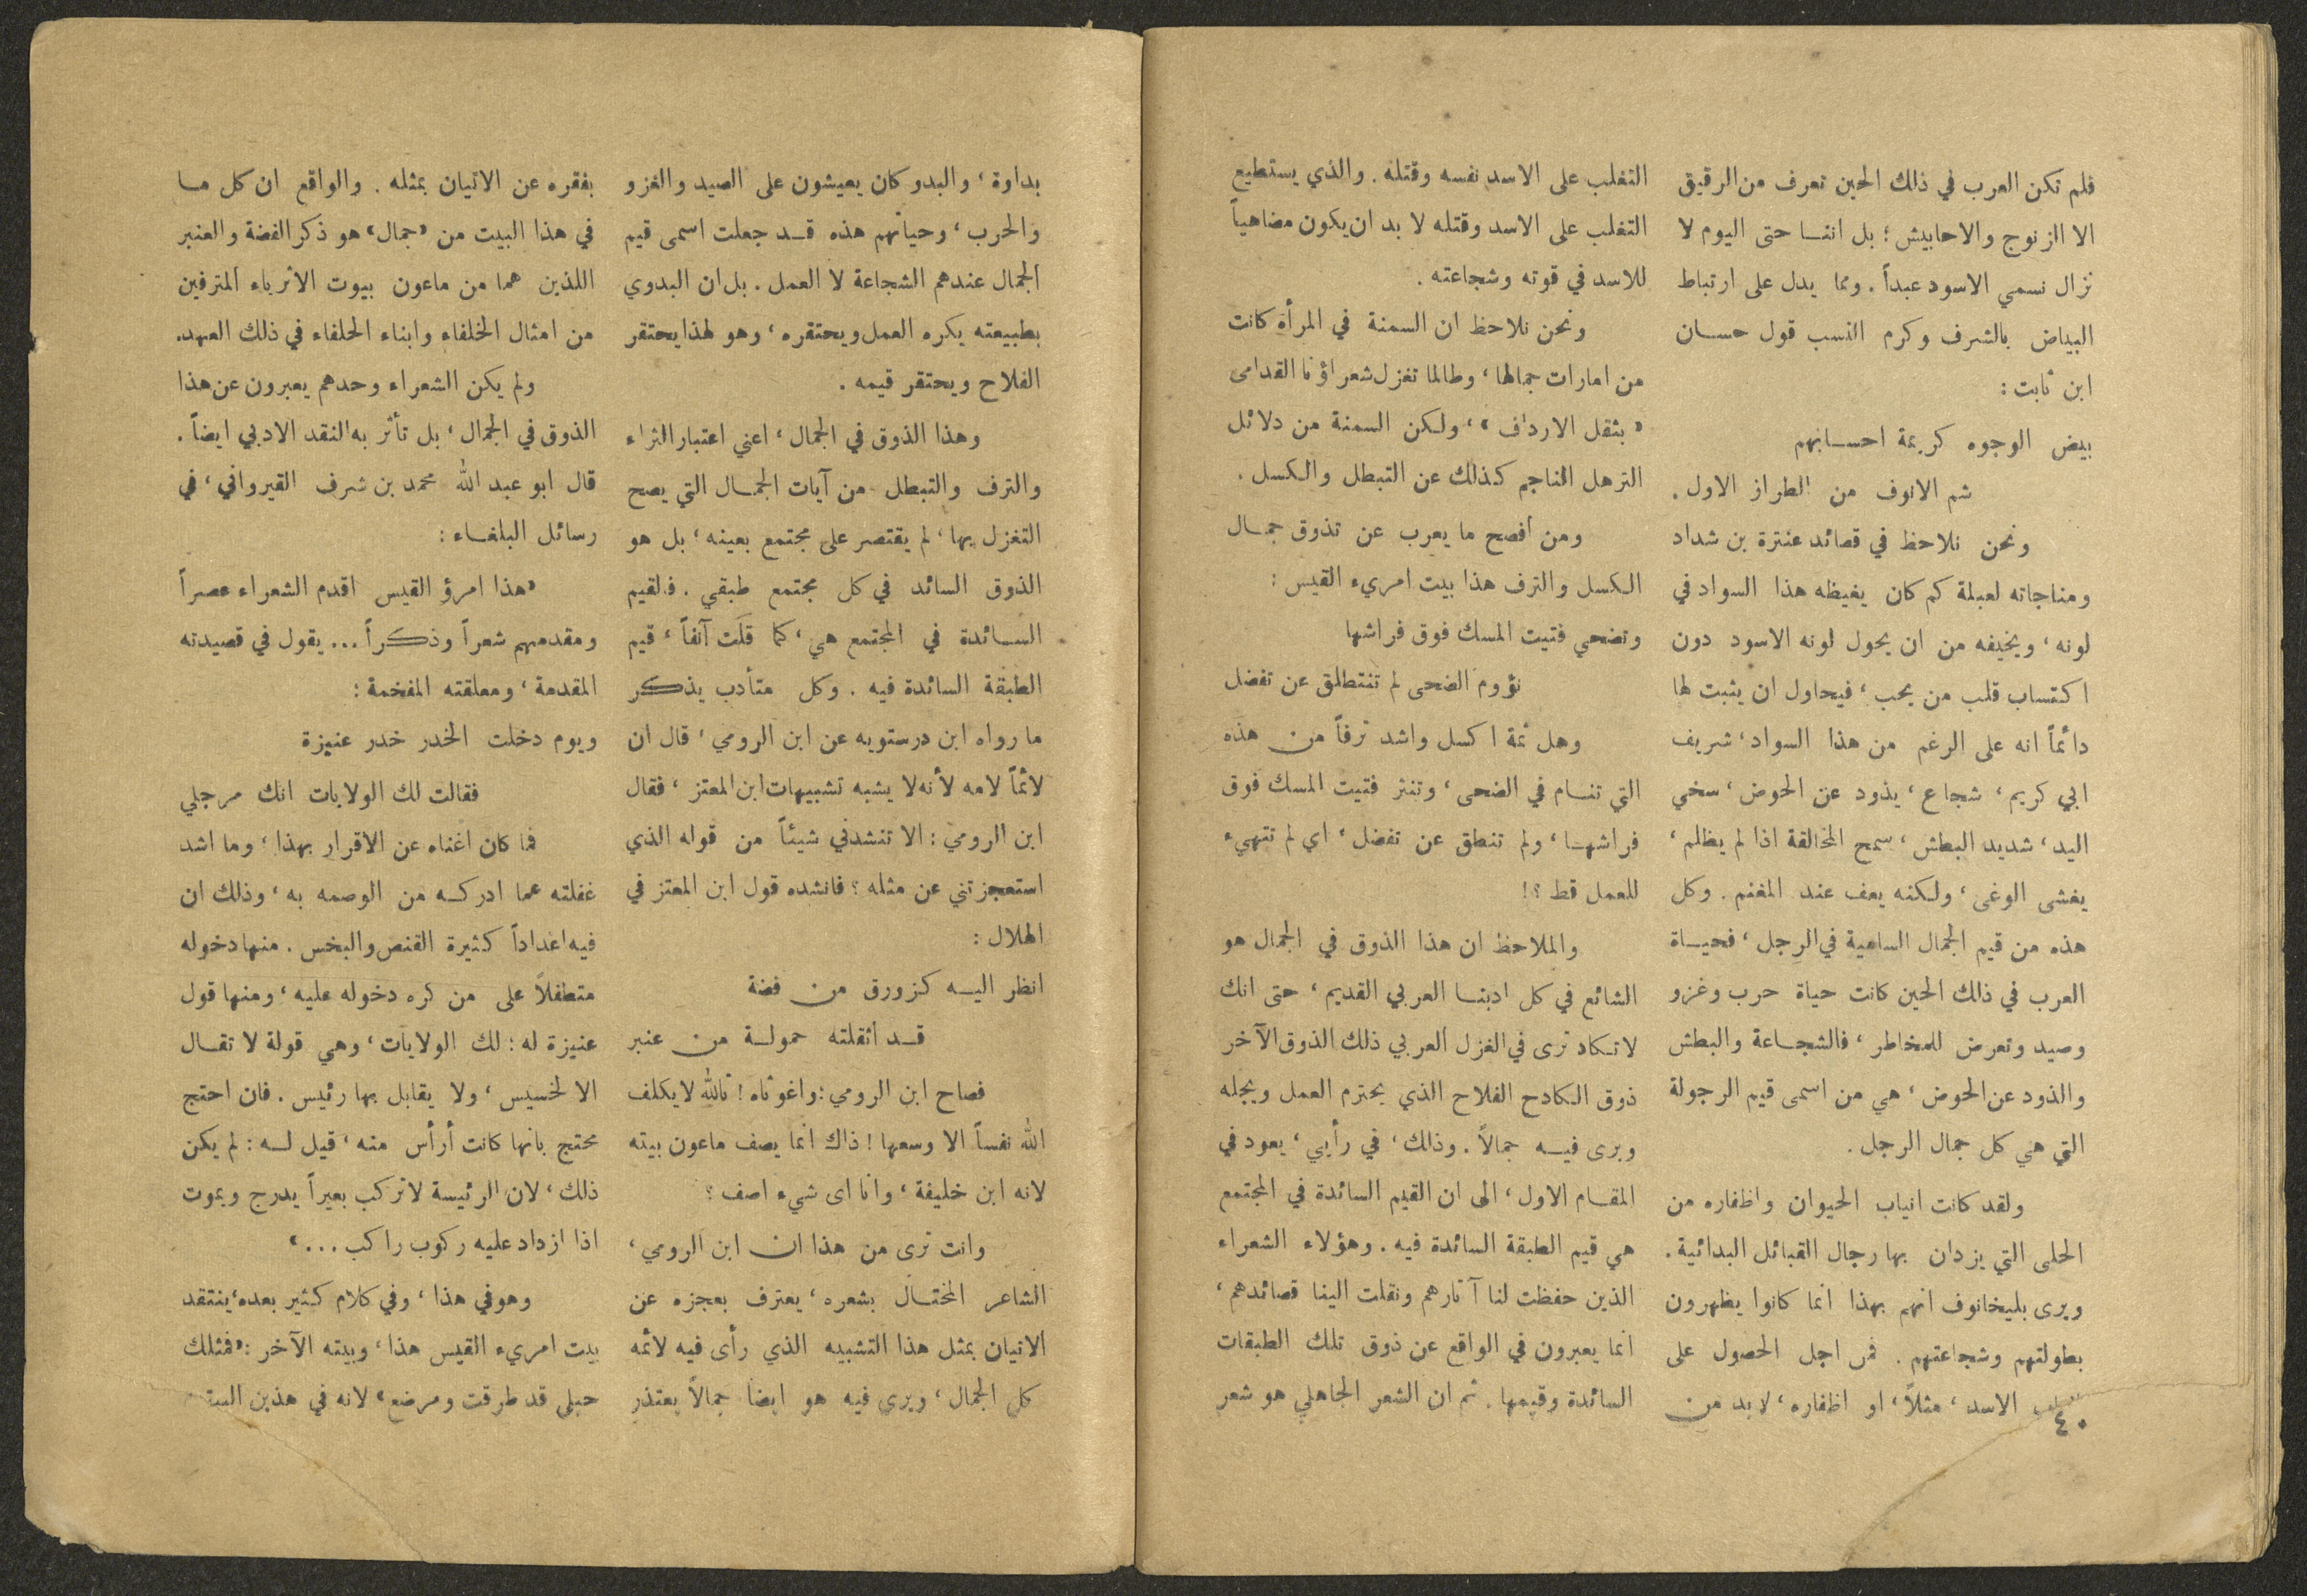 فلم تكن العرب في ذلك الحين تعرف من الرقيق
الا الزنوج والاحابيش؛ بل اننا حتى اليوم لا
نزال نسمي الاسود عبداً. ومما يدل على ارتباط
البياض بالشرف وكرم النسب قول حسان
ابن ثابت:
بيض الوجوه كريمة احسابهم
شم الانوف من الطراز الاول.
ونحن نلاحظ في قصائد عنترة بن شداد
ومناجاته لعبلة كم كان يغيظه هذا السواد في
لونه، ويخيفه من ان يحول لونه الاسود دون
اكتساب قلب من يحب، فيحاول ان يثبت لها
دائماً انه على الرغم من هذا السواد، شريف
ابي كريم، شجاع، يذود عن الحوض، سخي
اليد، شديد البطش، سمح المخالقة اذا لم يظلم،
يغشى الوغى، ولكنه يعف عند المغنم. وكل
هذه من قيم الجمال السامية في الرجل، فحياة
العرب في ذلك الحين كانت حياة حرب وغزو
وصيد وتعرض للمخاطر، فالشجاعة والبطش
والذود عن الحوض، هي من اسمى قيم الرجولة
التي هي كل جمال الرجل.
ولقد كانت انياب الحيوان واظفاره من
الحلى التي يزدان بها رجال القبائل البدائية.
ويرى بليخانوف انهم بهذا انما كانوا يظهرون
بطولتهم وشجاعتهم. فمن اجل الحصول على
الاسد، مثلاً، او اظفاره، لابد من
٤٠
التغلب على الاسد نفسه وقتله. والذي يستطيع
التغلب على الاسد وقتله لا بد ان يكون مضاهياً
للاسد في قوته وشجاعته.
ونحن نلاحظ ان السمنة في المرأة كانت
من امارات جمالها، وطالما تغزل شعراؤنا القدامى
«بثقل الارداف»، ولكن السمنة من دلائل
الترهل الناجم كذلك عن التبطل والكسل.
ومن افصح ما يعرب عن تذوق جمال
الكسل والترف هذا بيت امريء القيس:
وتضحي فتيت المسك فوق فراشها
نؤوم الضحى لم تنتطلق عن تفضل
وهل ثمة اكسل واشد ترفاً من هذه
التي تنام في الضحى، وتنثر فتيت المسك فوق
فراشها، ولم تنطق عن تفضل، اي لم تتهيء
للعمل قط؟!
والملاحظ ان هذا الذوق في الجمال هو
الشائع في كل ادبنا العربي القديم، حتى انك
لا تكاد ترى في الغزل العربي ذلك الذوق الآخر
ذوق الكادح الفلاح الذي يحترم العمل ويجله
ويرى فيه جمالاً. وذلك، في رأيي، يعود في
المقام الاول، الى ان القيم السائدة في المجتمع
هي قيم الطبقة السائدة فيه. وهؤلاء الشعراء
الذين حفظت لنا آثارهم ونقلت الينا قصائدهم،
انما يعبرون في الواقع عن ذوق تلك الطبقات
السائدة وقيمها. ثم ان الشعر الجاهلي هو شعر
بداوة، والبدو كان يعيشون على الصيد والغزو
والحرب، وحياتهم هذه قد جعلت اسمى قيم
الجمال عندهم الشجاعة لا العمل. بل ان البدوي
بطبيعته يكره العمل ويحتقره، وهو لهذا يحتقر
الفلاح ويحتقر قيمه.
وهذا الذوق في الجمال، اعني اعتبار الثراء
والترف والتبطل من آيات الجمال التي يصح
التغزل بها، لم يقتصر على مجتمع بعينه، بل هو
الذوق السائد في كل مجتمع طبقي. فالقيم
السائدة في المجتمع هي، كما قلت آنفاً، قيم
الطبقة السائدة فيه. وكل متأدب يذكر
ما رواه ابن درستويه عن ابن الرومي، قال ان
لائماً لامه لأنه لا يشبه تشبيهات ابن المعتز، فقال
ابن الرومي: الا تنشدني شيئاً من قوله الذي
استعجزتني عن مثله؟ فانشده قول ابن المعتز في
الهلال:
انظر اليه كزورق من فضة
قد أثقلته حمولة من عنبر
فصاح ابن الرومي: واغوثاه! تالله لا يكلف
الله نفساً الا وسعها! ذاك انما يصف ماعون بيته
لانه ابن خليفة، وانا اى شيء اصف؟
وانت ترى من هذا ان ابن الرومي،
الشاعر المختال بشعره، يعترف بعجزه عن
الاتيان بمثل هذا التشبيه الذي رأى فيه لائمه
كل الجمال، ويرى فيه هو ايضا جمالاً يعتذر
بفقره عن الاتيان بمثله. والواقع ان كل ما
في هذا البيت من «جمال» هو ذكر الفضة والعنبر
اللذين هما من ماعون بيوت الاثرياء المترفين
من امثال الخلفاء وابناء الخلفاء في ذلك العهد.
ولم يكن الشعراء وحدهم يعبرون عن هذا
الذوق في الجمال، بل تأثر به النقد الادبي ايضاً.
قال ابو عبد الله محمد بن شرف القيرواني، في
رسائل البلغاء:
«هذا امرؤ القيس اقدم الشعراء عصراً
ومقدمهم شعراً وذكراً... يقول في قصيدته
المقدمة، ومعلقته المفخمة:
ويوم دخلت الخدر خدر عنيزة
فقالت لك الولايات انك مرجلي
فما كان اغناه عن الاقرار بهذا، وما اشد
غفلته عما ادركه من الوصمه به، وذلك ان
فيه اعداداً كثيرة القنص والبخس. منها دخوله
متطفلاً على من كره دخوله عليه، ومنها قول
عنيزة له: لك الولايات، وهي قولة لا تقال
الا لخسيس، ولا يقابل بها رئيس. فان احتج
محتج بانها كانت أرأس منه، قيل له: لم يكن
ذلك، لان الرئيسة لا تركب بعيراً يدرج ويموت
اذا ازداد عليه ركوب راكب...»
وهو في هذا، وفي كلام كثير بعده، ينتقد
بيت امريء القيس هذا، وبيته الآخر: «فمثلك
حبلى قد طرقت ومرضع» لانه في هذين